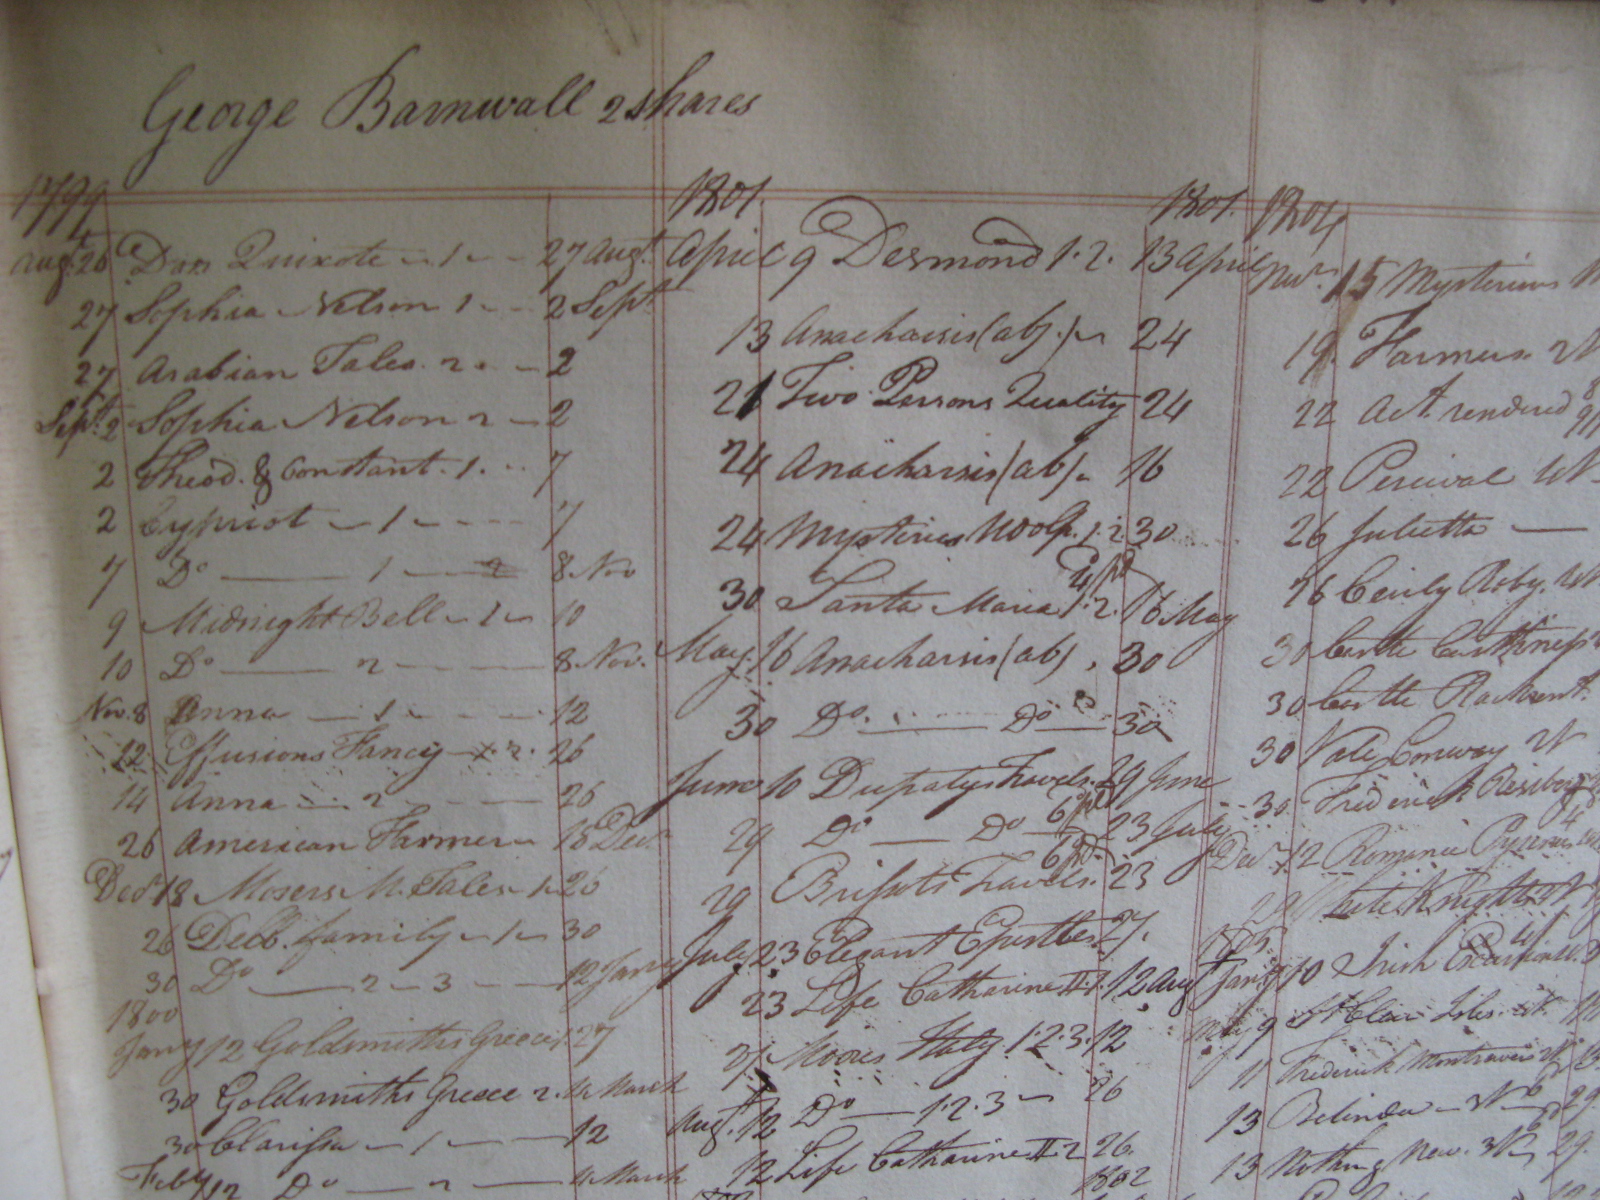 George Barnwall 2 shares
1799
Aug. 26 Don Quixote 1 27 Aug.t
27 Sophia Nelson 1 2 Sept
27 Arabian Tales 2 2
Sept. 2 Sophia Nelson 2 2
2 Theod. & Constant. 1. 7
2 Cypriot 1 7
7 Do 1 8 Nov
9 Midnight Bell 1 10
10 Do 2 8 Nov.
Nov. 8 Anna 1 12
12 Effusions Fancy 2. 26
14 Anna 2 26
26 American Farmer 18 Dec.
Decr 18 Mosers M. Tales 1 26
26 Delb. family 1 30
30 Do 2 3 12 Jany
1800
Jany 12 Goldsmiths Greece 1 27
30 Goldsmiths Greece 2. 4 March
30 Clarissa 1 12
Feby 12 Do 2 4 March
1801. 1801.
April 9 Desmond 1. 2. 13 April
13 Anacharsis (ab.) 24
21 Two Persons Quality 24
24 Anacharsis (ab). 16
24 Mysteries Udolp. 1. 2. 30
30 Santa Maria 1. 2. 16 May
May. 16 Anacharsis (ab). 30
30 Do. Do 30
June 10 Dupatys Travels. 29 June
29 Do Do 23 July
29 Brissots Travels. 23
July 23 Elegant Epistles 27.
23 Life Catharine II. 1. 12 Aug
27 Moores Italy 1. 2. 3. 12
Aug. 12 Do 1. 2. 3 26
12 Life Catharine II 2 26.
1802
1804
Novr 15 Mysterious
19. Farmers
22 Act. rendered
22 Percival
26 Julietta
26 Cecily
30 Castle
30 Castle Rackrent.
30 Vale Conway
30 Frederick
Decr 12 Romance Pyrenees
White Knights
1805.
Jany 10 Irish Excursion
9 St Clair Isles
11 Frederick Montravers
13 Belinda
13 Nothing New. 29.